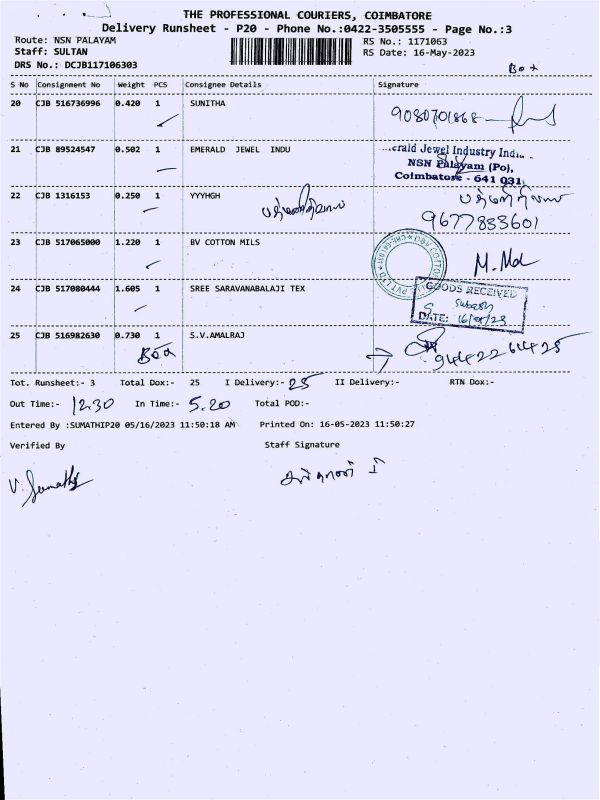 THE PROFESSIONAL COURIERS, COIMBATORE
Delivery Runsheet - P20 - Phone No.:0422-3505555 - Page No.:3
Route: NSN PALAYAM RS No.: 1171063
Staff: SULTAN RS Date: 16-May-2023
DRS No.: DCJB117106303 Box
S No Consignment No Weight PCS Consignee Details Signature
20 CJB 516736996 0.420 1 SUNITHA
9080701868
21 CJB 89524547 0.502 1 EMERALD JEWEL INDU
erald Jewel Industry
NSN Palayam (Po),
Coimbatore - 641 031.
22 CJB 1316153 0.250 1 YYYHGH
9677833601
23 CJB 517065000 1.220 1 BV COTTON MILS
M. Md
24 CJB 517080444 1.605 1 SREE SARAVANABALAJI TEX
GOODS RECEIVED
Subash
DATE: 16/05/23
25 CJB 516982630 0.730 1 S.V.AMALRAJ
Box 9442264425
Tot. Runsheet:- 3 Total Dox:- 25 I Delivery:- 25 II Delivery:- RTN Dox:-
Out Time:- 12.30 In Time:- 5.20 Total POD:-
Entered By :SUMATHIP20 05/16/2023 11:50:18 AM Printed On: 16-05-2023 11:50:27
Verified By Staff Signature
V. Sumathi